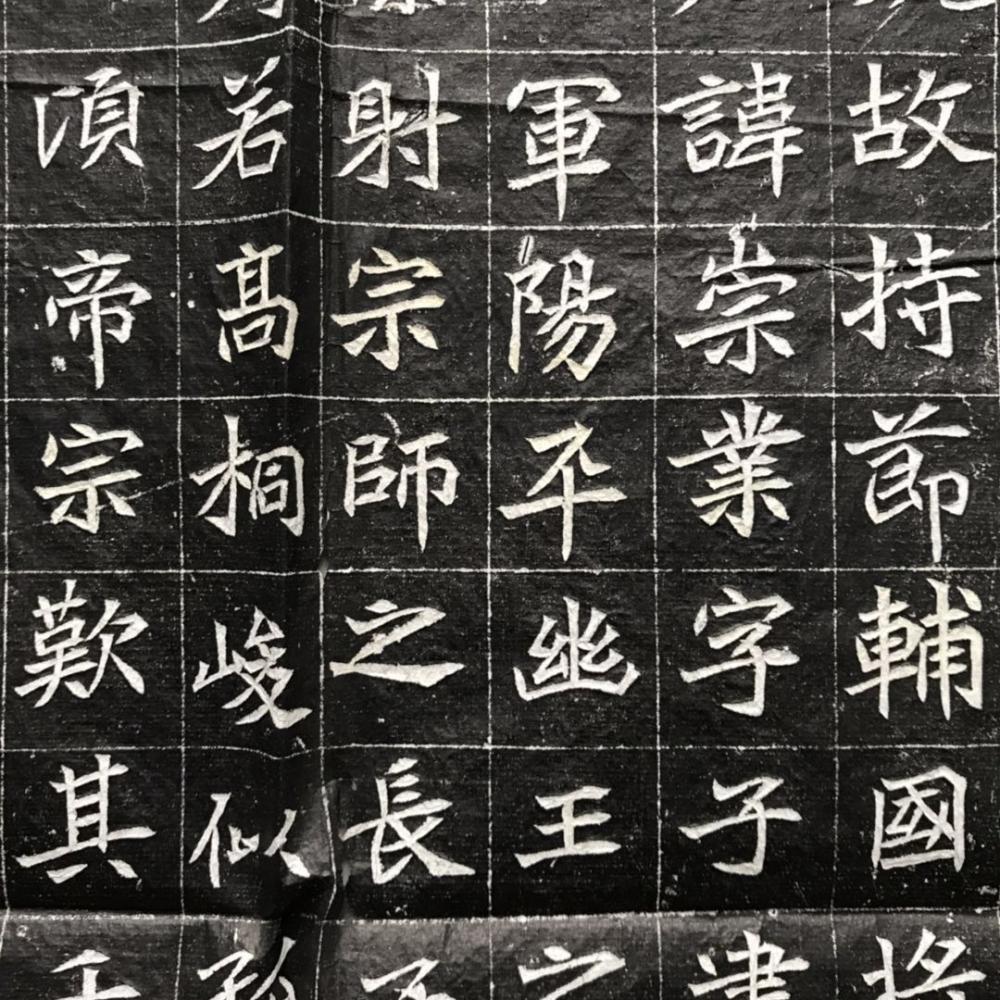 故持莭輔國
諱崇業字子
軍陽平幽王之
射宗師之長
若髙桐峻似
湏帝宗歎其